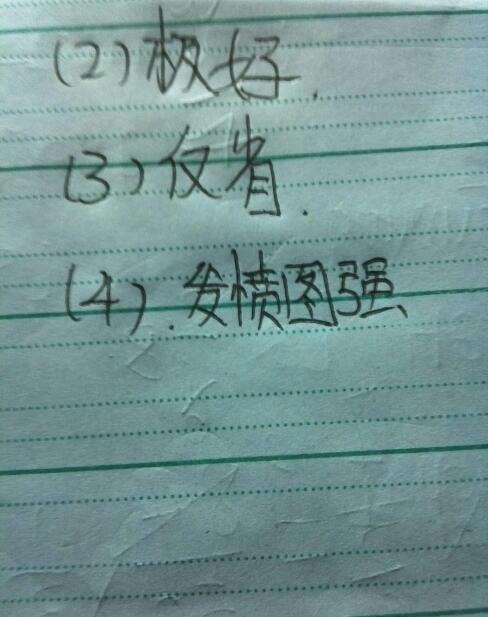 (2)极好.
(3)仅省.
(4).发愤图强